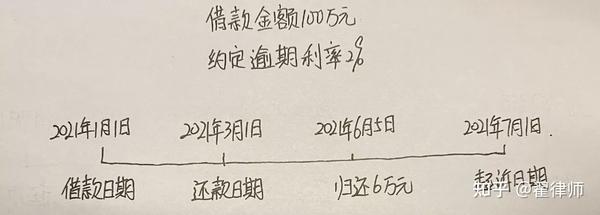 借款金额100万元
约定逾期利率2%
2021年1月1日 2021年3月1日 2021年6月5日 2021年7月1日.
借款日期 还款日期 归还6万元 起诉日期
知乎 @翟律师